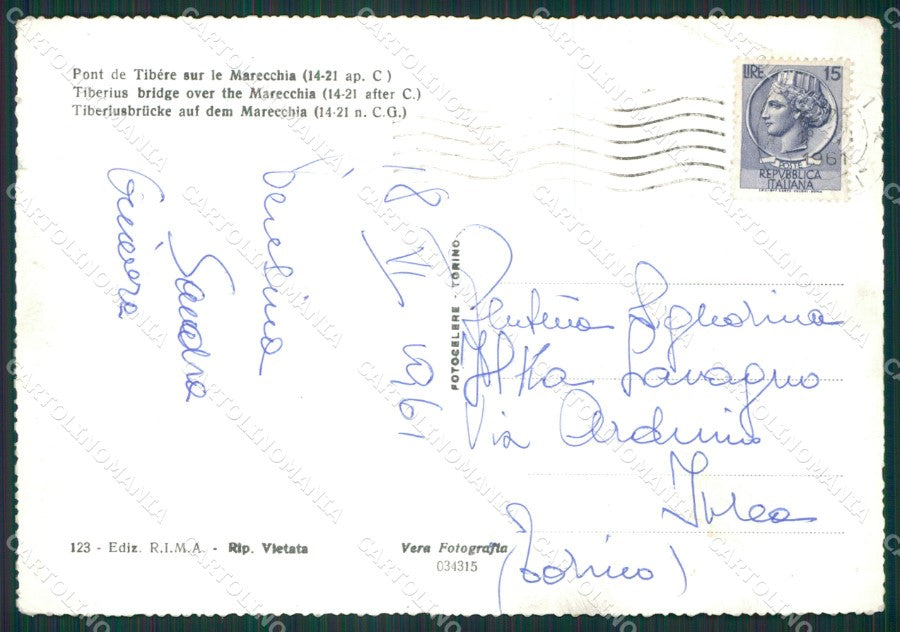 Pont de Tibére sur le Marecchia (14-21 ap. C )
Tiberius bridge over the Marecchia (14-21 after C.)
Tiberiusbrücke auf dem Marecchia (14-21 n. C.G.)
LIRE 15
POSTE
REPVBBLICA
ITALIANA
1961
18 VI 1961
Teresina
Sandra
Ginevra
FOTOCELERE - TORINO
Gentma Signorina
Lavagno
Via Arduino
Ivrea
(Torino)
123 - Ediz. R.I.M.A. - Rip. Vietata
Vera Fotografia
034315
CARTOLINOMANIA